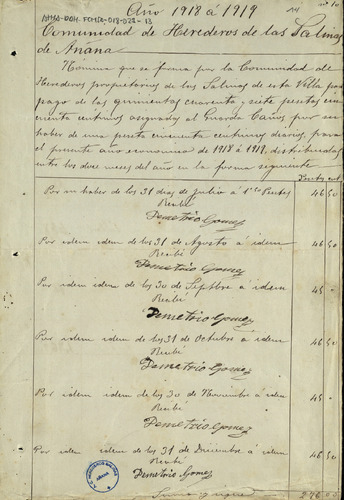 Año 1918 á 1919
Comunidad de Herederos de las Salinas
de Añana
Nómina que se forma por la Comunidad de
Herederos propietarios de las Salinas de esta Villa para
pago de las quinientas cuarenta y siete pesetas cin
cuenta centimos asignadas al Guarda Caños por su
haber de una peseta cincuenta centimos diarios, para
el presente año economico de 1918 á 1919, distribuidas
entre los doce meses del año en la forma siguiente
Por su haber de los 31 dias de Julio á 1'50 Pesetas 46 50
Recibí
Demetrio Gomez
Por idem idem de los 31 de Agosto á idem 46 50
Recibí
Demetrio Gomez
Por idem idem de los 30 de Septbre á idem 45 "
Recibí
Demetrio Gomez
Por idem idem de los 31 de Octubre á idem 46 50
Recibí
Demetrio Gomez
Por idem idem de los 30 de Noviembre á idem 45 "
Recibí
Demetrio Gomez
Por idem idem de los 31 de Diciembre á idem 46 50
Recibí
Demetrio Gomez
Suma y sigue